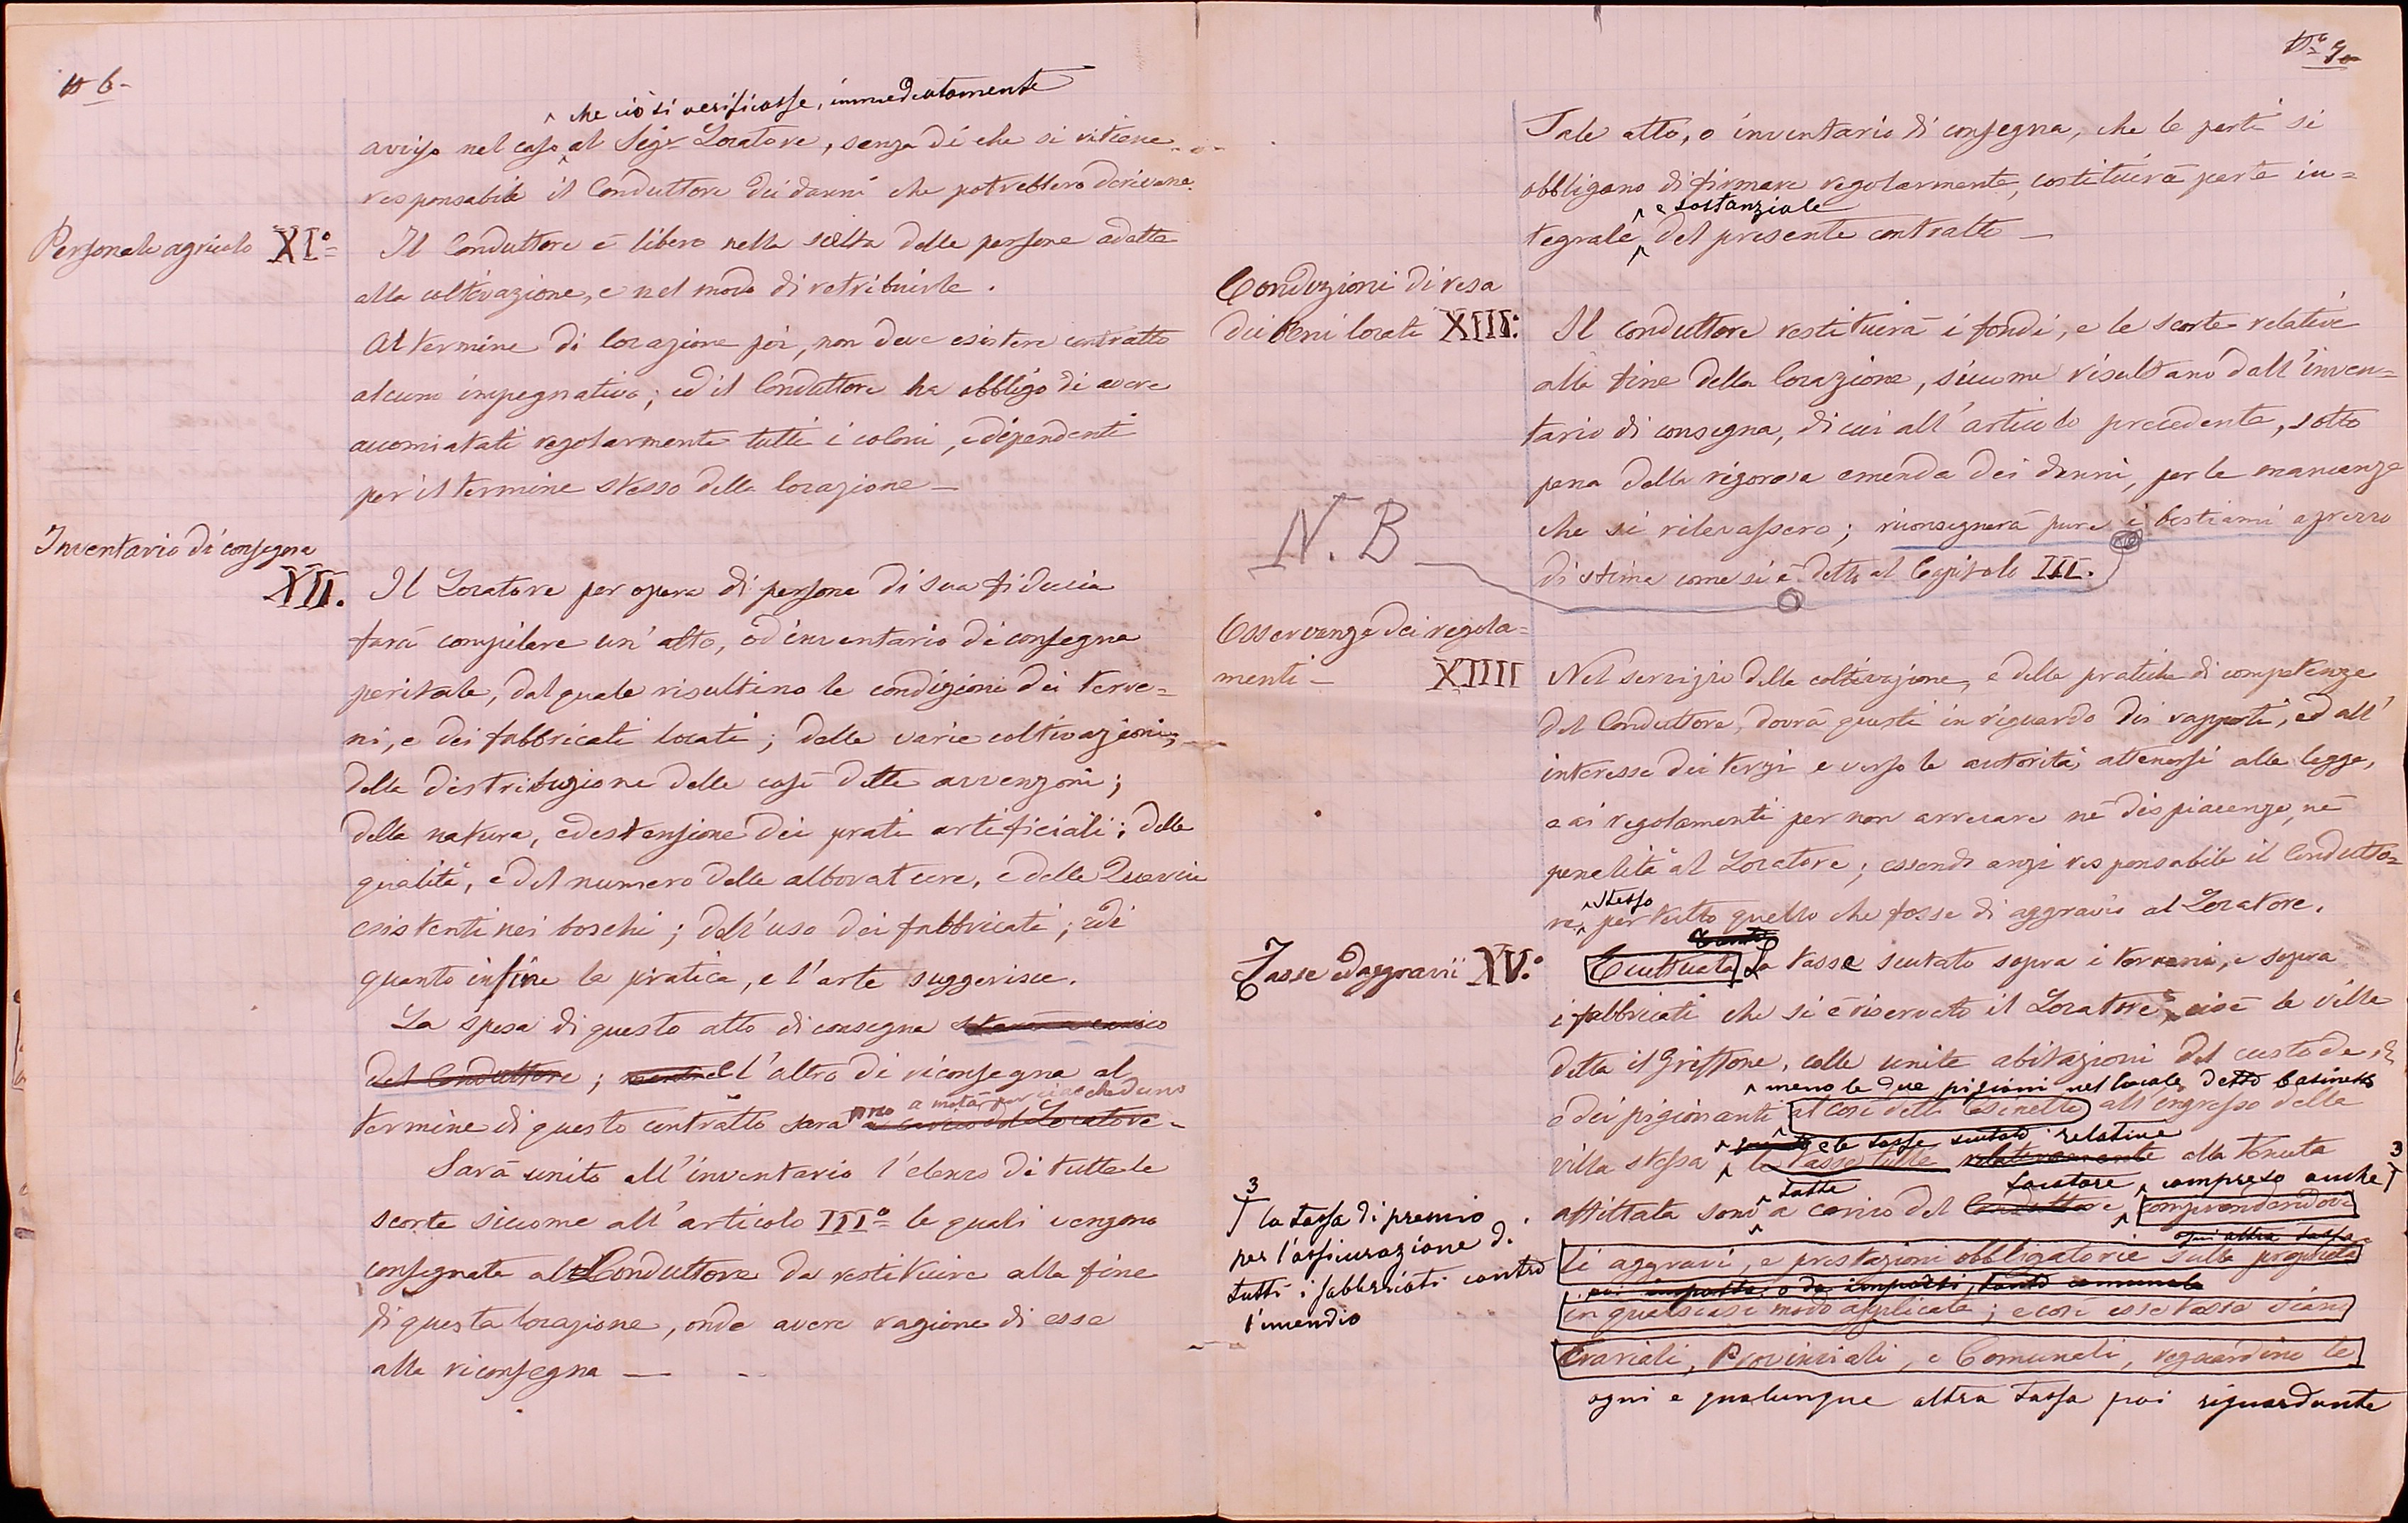 N 6-
^ che ciò si verificasse, immediatamente
avviso nel caso ^ al Sigr Locatore, senza di che si ritiene
responsabile il Conduttore dei danni che potrebbero derivarne.
Personale agricolo XI°=
Il Conduttore è libero nella scelta delle persone adatte
alla coltivazione, e nel modo di retribuirle.
Al termine di locazione poi, non deve esistere contratto
alcuno impegnativo; ed il Conduttore ha obbligo di avere
accomiatati regolarmente tutti i coloni, e dipendenti
per il termine stesso della locazione —
Inventario di consegna
XII. Il Locatore per opera di persone di sua fiducia
farà compilare un'atto, od inventario di consegna
peritale, dal quale risultino le condizioni dei terre=
ni, e dei fabbricati locati; delle varie coltivazioni;
della distribuzione delle case dette avvenzoni;
della natura, ed estensione dei prati artificiali; della
qualità, e del numero delle alborature, e delle Quercie
esistenti nei boschi; dell'uso dei fabbricati; e di
quanto infine la pratica, e l'arte suggerisce.
La spesa di questo atto di consegna starà a carico
del Conduttore; mentre l'altro di riconsegna al
anno a metà per ciascheduno
termine di questo contratto sarà a carico del Locatore -
Sarà unito all'inventario l'elenco di tutte le
scorte siccome all'articolo III°= le quali vengono
consegnate al Conduttore da restituire alla fine
di questa locazione, onde avere ragione di esse
alla riconsegna —
N° 7-
Tale atto, o inventario di consegna, che le parti si
obbligano di firmare regolarmente, costituirà parte in=
^ e sostanziale
tegrale ^ del presente contratto —
Conduzioni di resa
dei beni locati XIII:
Il conduttore restituirà i fondi, e le scorte relative
alla fine della locazione, siccome risultano dall'inven=
tario di consegna, di cui all'articolo precedente, sotto
pena della rigorosa emenda dei danni, per le mancanze
che si rilevassero; riconsegnerà pure i bestiami a prezzo
N. B
di stima come si è detto al Capitolo III.
Osservanza dei regola=
menti — XIIII
Nel servizio della coltivazione, e delle pratiche di competenza
del Conduttore, dovrà questi in riguardo dei rapporti, ed all'
interesse dei terzi e verso le autorità, attenersi alle legge,
e ai regolamenti per non arrecare nè dispiacenze, nè
penalità al Locatore; essendo anzi responsabile il Condutto=
^ stesso
re ^ per tutto quello che fosse di aggravio al Locatore.
Tasse ed aggravii XV.°
Eccettuata La tassa scutato sopra i terreni, e sopra
i fabbricati che si è riservato il Locatore, cioè la villa
detta il Griffone, colle unite abitazioni del custode,
^ meno le due pigioni nel locale detto Casinetto
e dei pigionanti al così detto Casinetto all'ingresso della
^ e le tasse scutato relative
villa stessa ^ le tasse tutte relativamente alla tenuta
^ tutte Locatore ^ compreso anche 3
affittata sono ^ a carico del Conduttore ^ comprendendovi
ogni altra tassa
li aggravi, e prestazioni obbligatorie sulla proprietà
poi imposta, o da imporsi, tanto comunale
in qualsiasi modo applicate; e così esse tasse siano
Erariali, Provinciali, e Comunali, reguardino le
ogni e qualunque altra tassa poi riguardante
3
la tassa di premio
per l'assicurazione di
tutti i fabbricati contro
l'incendio